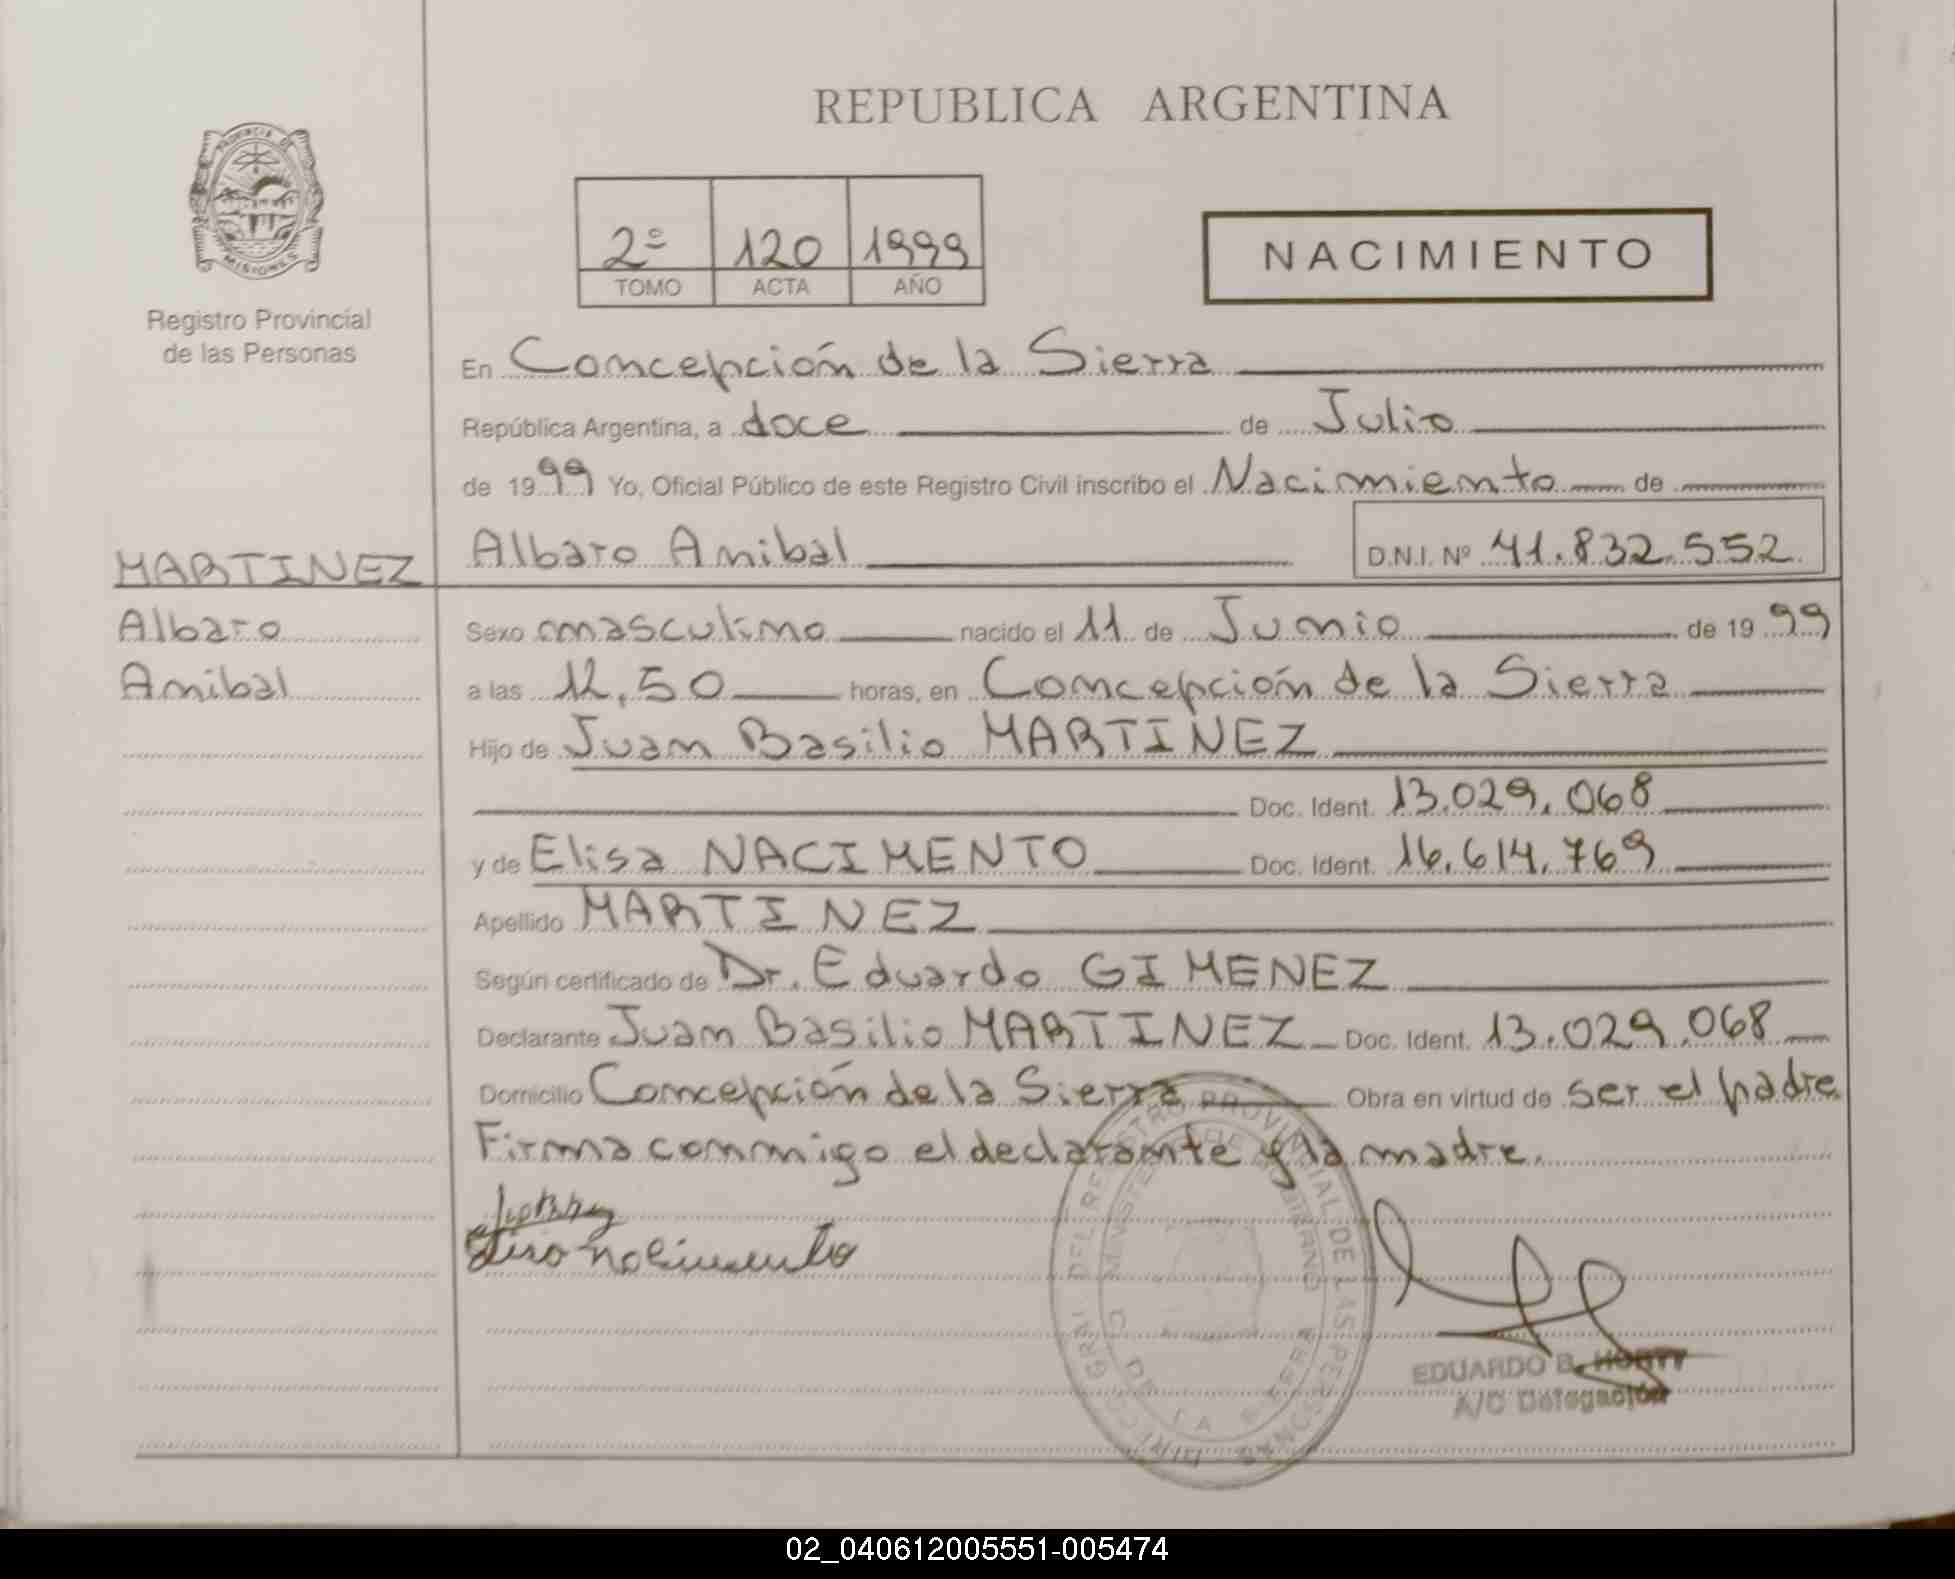 REPUBLICA ARGENTINA
PROVINCIA DE
MISIONES
Registro Provincial
de las Personas
2º 120 1999
TOMO ACTA AÑO
NACIMIENTO
En Concepción de la Sierra
República Argentina, a doce de Julio
de 1999 Yo, Oficial Público de este Registro Civil inscribo el Nacimiento de
MARTINEZ
Albaro
Anibal
Albaro Anibal D.N.I. Nº 41.832.552
Sexo masculino nacido el 11 de Junio de 1999
a las 12,50 horas, en Concepción de la Sierra
Hijo de Juan Basilio MARTINEZ
Doc. Ident. 13.029.068
y de Elisa NACIMENTO Doc. Ident. 16.614.769
Apellido MARTINEZ
Según certificado de Dr. Eduardo GIMENEZ
Declarante Juan Basilio MARTINEZ Doc. Ident. 13.029.068
Domicilio Concepción de la Sierra Obra en virtud de ser el padre
Firma conmigo el declarante y la madre.
EDUARDO B.
A/C Delegación
02_040612005551-005474